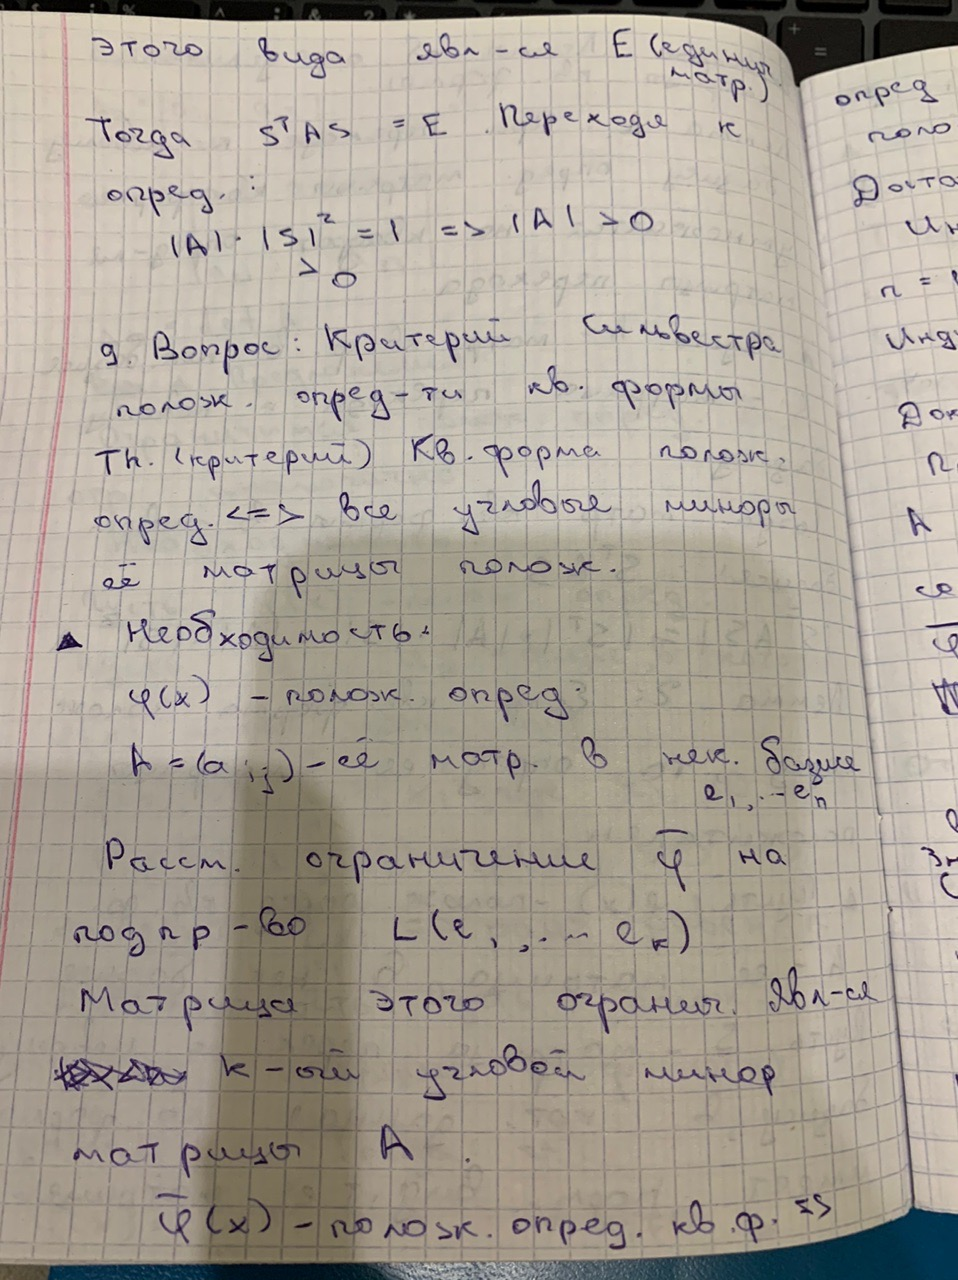 этого вида явл-ся E (единич.
матр.)
Тогда SᵀAS = E. Переходя к
опред.:
|A|·|S|² = 1 => |A| > 0
> 0
9. Вопрос: Критерий Сильвестра
полож. опред-ти кв. формы
Th. (критерий) Кв. форма полож.
опред. <=> все угловые миноры
её матрицы полож.
▲ Необходимость:
φ(x) - полож. опред.
A = (a i j) - её матр. в нек. базисе
e₁, ... eₙ
Рассм. ограничение φ̅ на
подпр-во L(e₁, ... eₖ)
Матрица этого огранич. явл-ся
к-ый угловой минор
матрицы A.
φ̅(x) - полож. опред. кв. ф. =>
опред
поло
Доста
Ин
n =
Инд
Док
П
A
се
φ
Зн